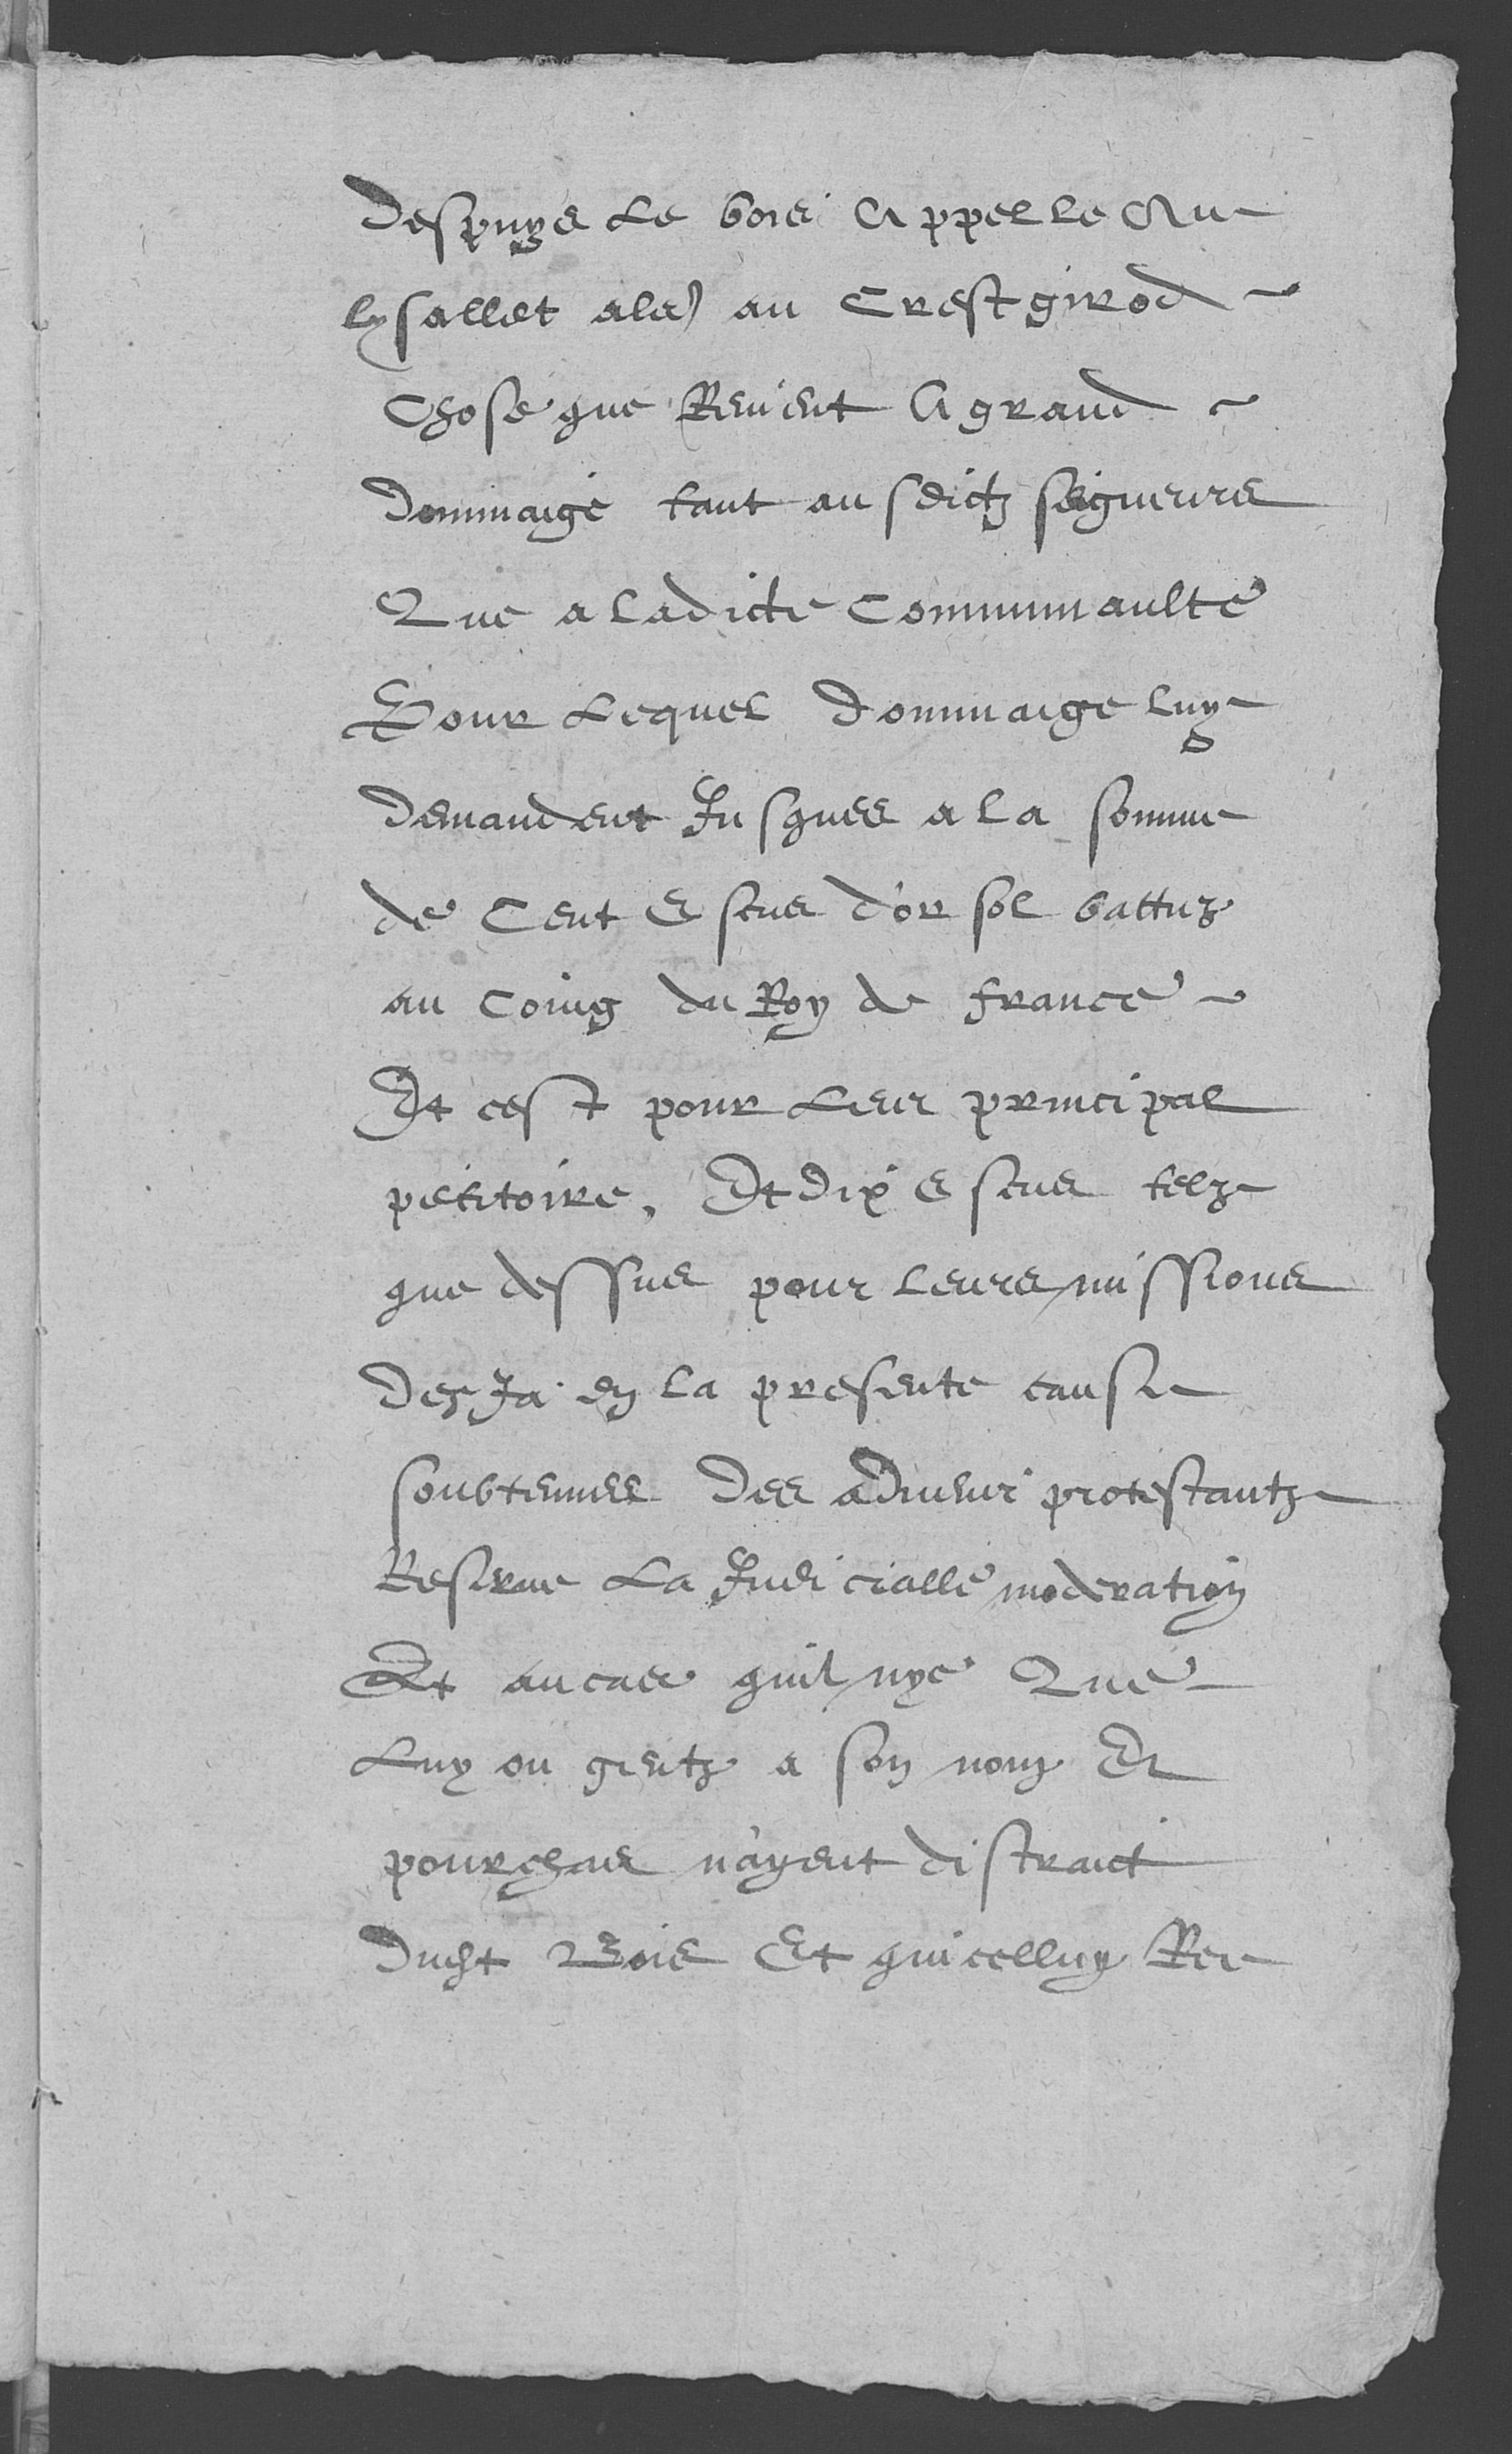 despuys Le bois Appelle Au
lysallet ales au Crest girod
Chose que Revient A grand
dommaige tant ausdictz seigneurs
Que a ladicte Communaulte
Pour Lequel dommaige luy
demandent Jusques a la somme
de Cent Escus d'or sol battuz
au Coing du Roy de france
Et cest pour Leur principal
petitoire, Et dix escus telz
que dessus pour leurs missions
desJa en la presente cause
soubtenues des advenir protestantz
Reserve La Judicialle moderation
Et au cas quil nye Que
Luy ou gentz a son nom Et
pourchas n'ayent distraict
dudit Bois Et quicelluy Ree